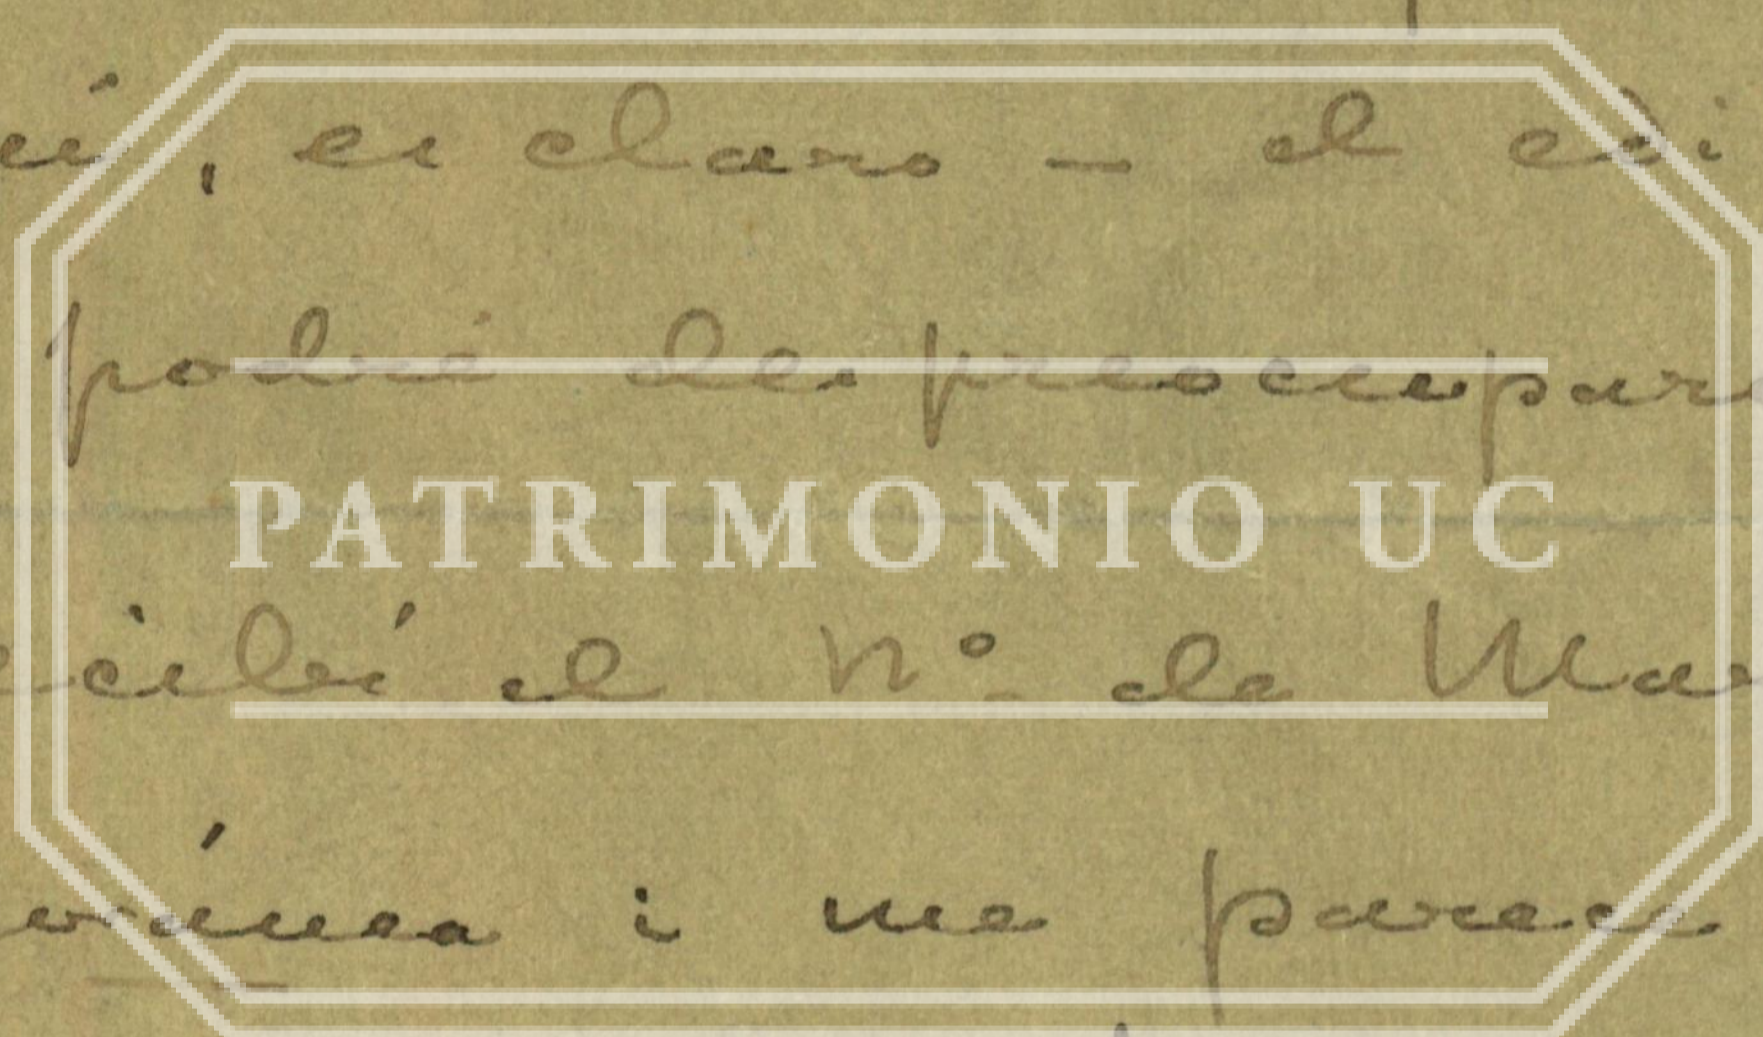 , es claro – el edi
podré despreocupar
PATRIMONIO UC
cibí el Nº de Ma
ánea i me parece